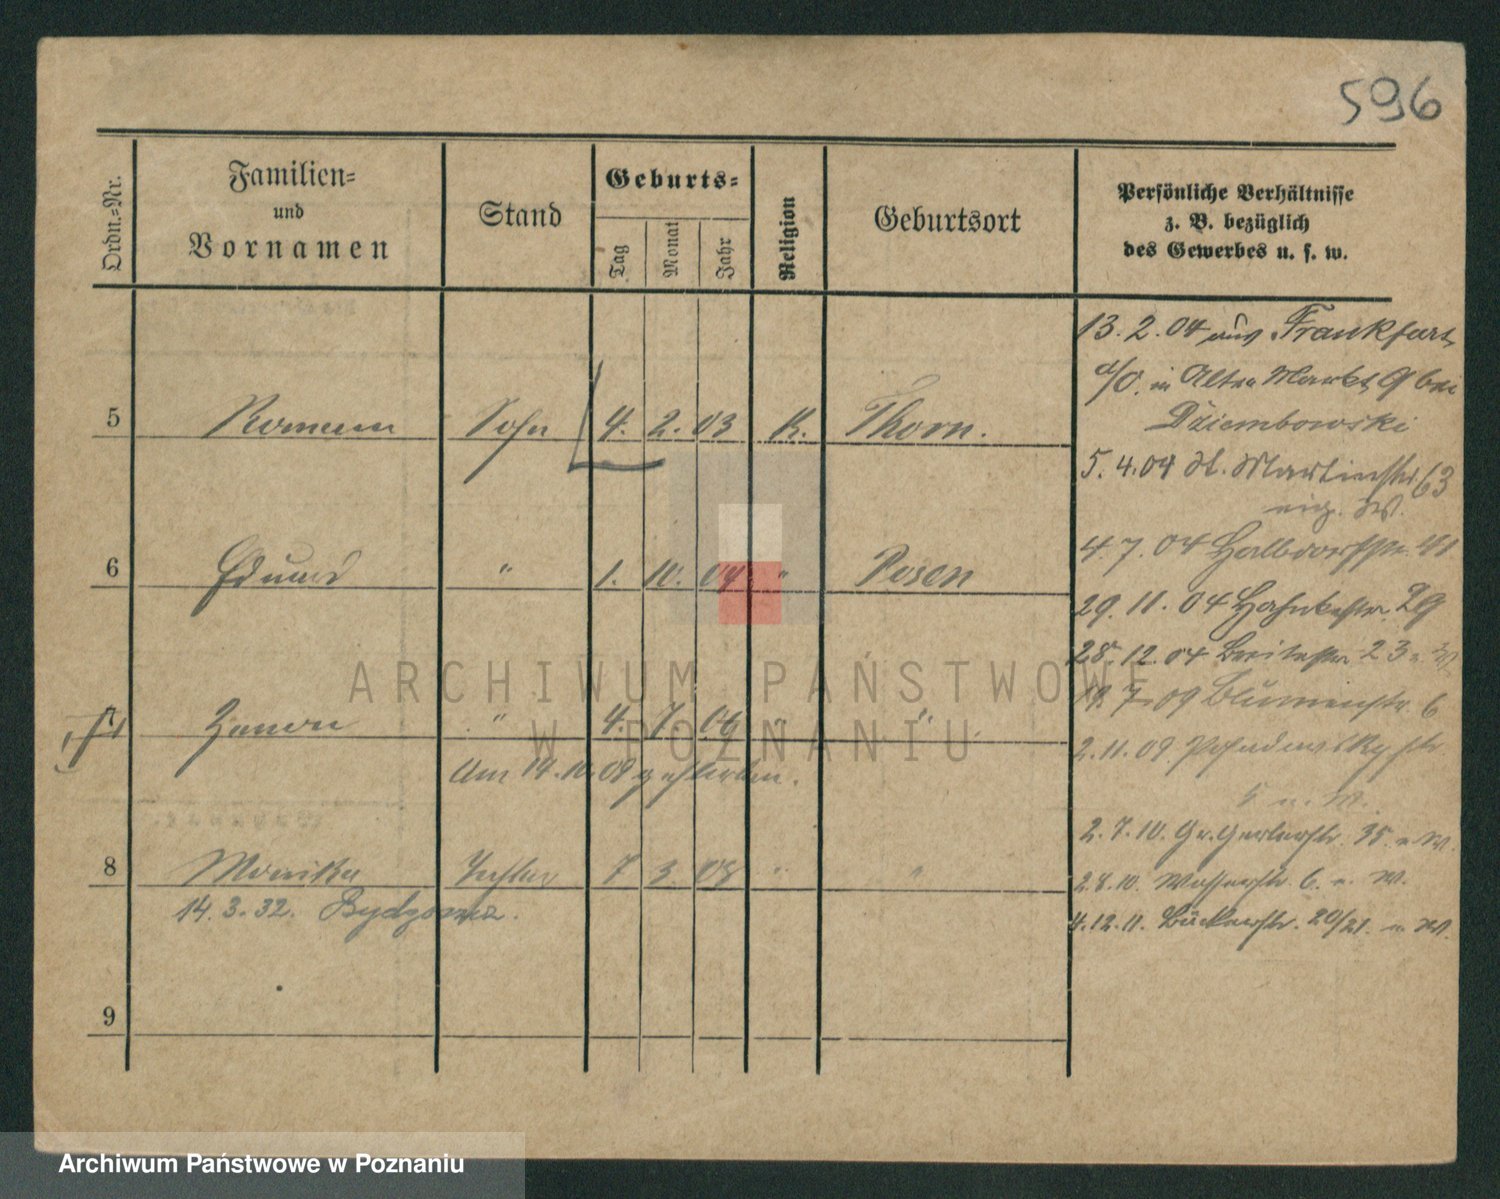 596
Ordn.-Nr.
Familien-
und
Vornamen
Stand
Geburts-
Tag
Monat
Jahr
Religion
Geburtsort
Persönliche Verhältnisse
z. B. bezüglich
des Gewerbes u. s. w.
13.2.04 aus Frankfurt
a/O. in Alter Markt 9 bei
Dziembowski
5 Roman Sohn 4. 2. 03 K. Thorn.
5.4.04 St. Martinstr. 63
eig. W.
4.7.04 Halbdorfstr.
6 Eduard " 1. 10. 04 " Posen
29.11.04 29
28.12.04 Breitestr. 23
ARCHIWUM PAŃSTWOWE
W POZNANIU
7 " 4. 7. 06 " "
09 Blumenstr. 6
2.11.09.
Am 14.10.08 gestorben.
2.7.10. Gr. Gerberstr. 35. e. W.
8 Monika Tochter 7 3. 08 " "
2.8.10. Wasserstr. 6. e. W.
14.3.32. Bydgoszcz.
4.12.11. Bäckerstr. 20/21. e. W.
9
Archiwum Państwowe w Poznaniu